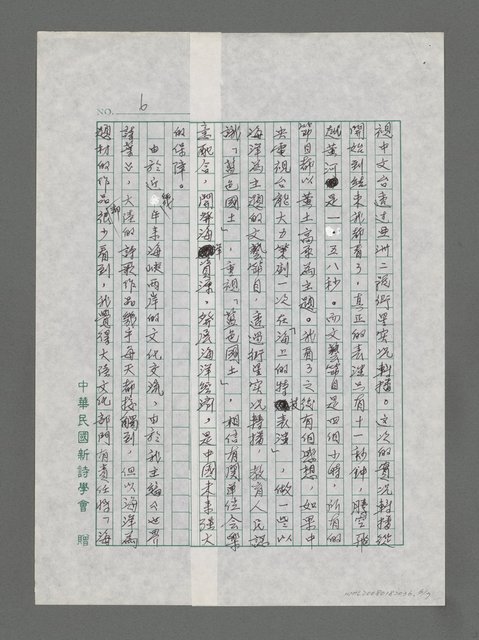 NO. 6
視中文台透過亞洲二號衛星實況轉播。這次的實況轉播從
開始到結束我都看了,真正的表演只有十一秒鐘,騰空飛
越黃河是一.五八秒。而文藝節目是四個小時,所有的
節目都以黃土高原為主題。我看了之後有個聯想,如果中
央電視台能大力策劃一次在「海上的特技表演」,做一些以
海洋為主題的文藝節目,透過衛星實況轉播,教育人民認
識「藍色國土」,重視「藍色國土」,相信有關單位會樂
意配合,開發海洋資源,發展海洋經濟,是中國未來強大
的保障。
由於近幾年來海峽兩岸的文化交流,由於我主編《世界
詩葉》,大陸的詩歌作品幾乎每天都接觸到,但以海洋為
題材的作品卻很少看到,我覺得大陸文化部門有責任將「海
中華民國新詩學會 贈